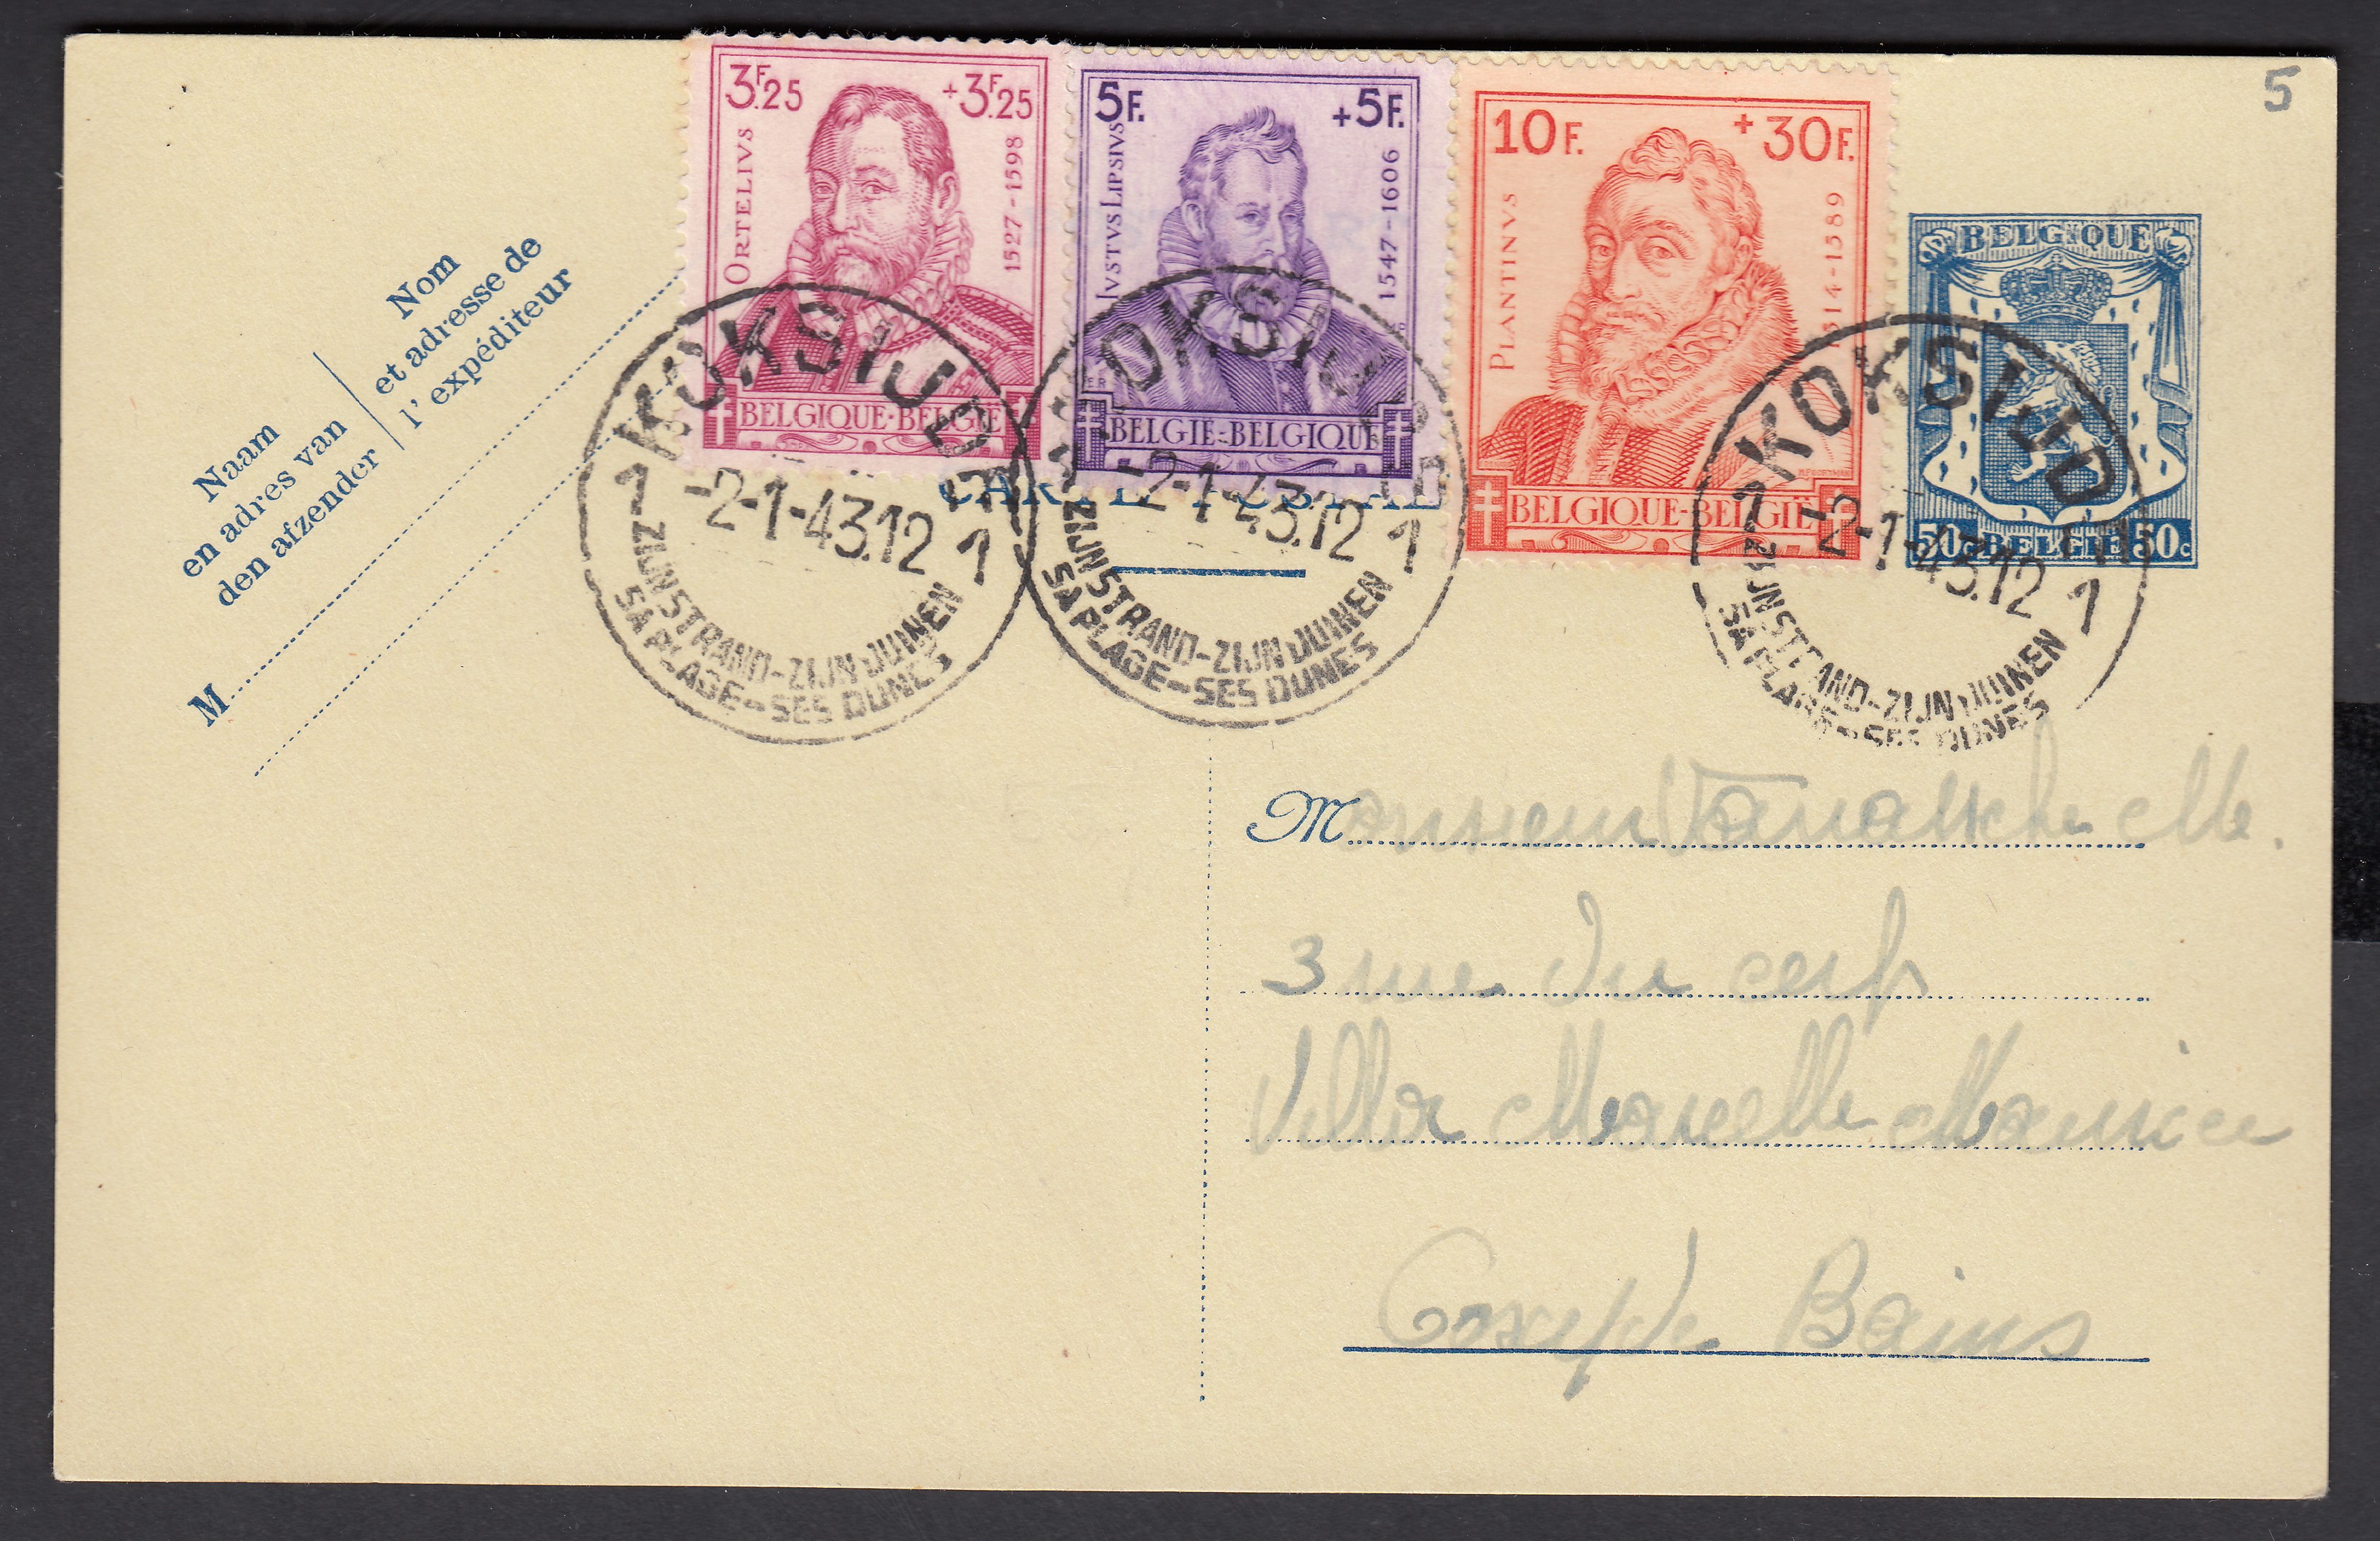 5
3F.25 +3F.25
ORTELIVS
1527-1598
BELGIQUE-BELGIË
5F. +5F.
IVSTVS LIPSIVS
1547-1606
BELGIË-BELGIQUE
10F. +30F.
PLANTINVS
1514-1589
BELGIQUE-BELGIË
BELGIQUE
50c BELGIË 50c
Nom
et adresse de
l'expéditeur
Naam
en adres van
den afzender
M
CARTE POSTALE
KOKSIJD
1 -2-1-43.12 1
ZIJN STRAND-ZIJN DUINEN
SA PLAGE-SES DUNES
KOKSIJD
-2-1-43.12 1
ZIJN STRAND-ZIJN DUINEN
SA PLAGE-SES DUNES
KOKSIJD
1 -2-1-43.12 1
ZIJN STRAND-ZIJN DUINEN
SA PLAGE-SES DUNES
Monsieur
3 rue du cerf
Villa Marcelle Maurice
Coxyde Bains